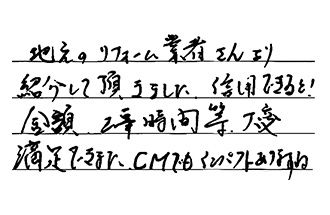 地元のリフォーム業者さんより
紹介して頂きました。信用できると!
金額、工事時間等、大変
満足できました。CMでもインパクトありますね